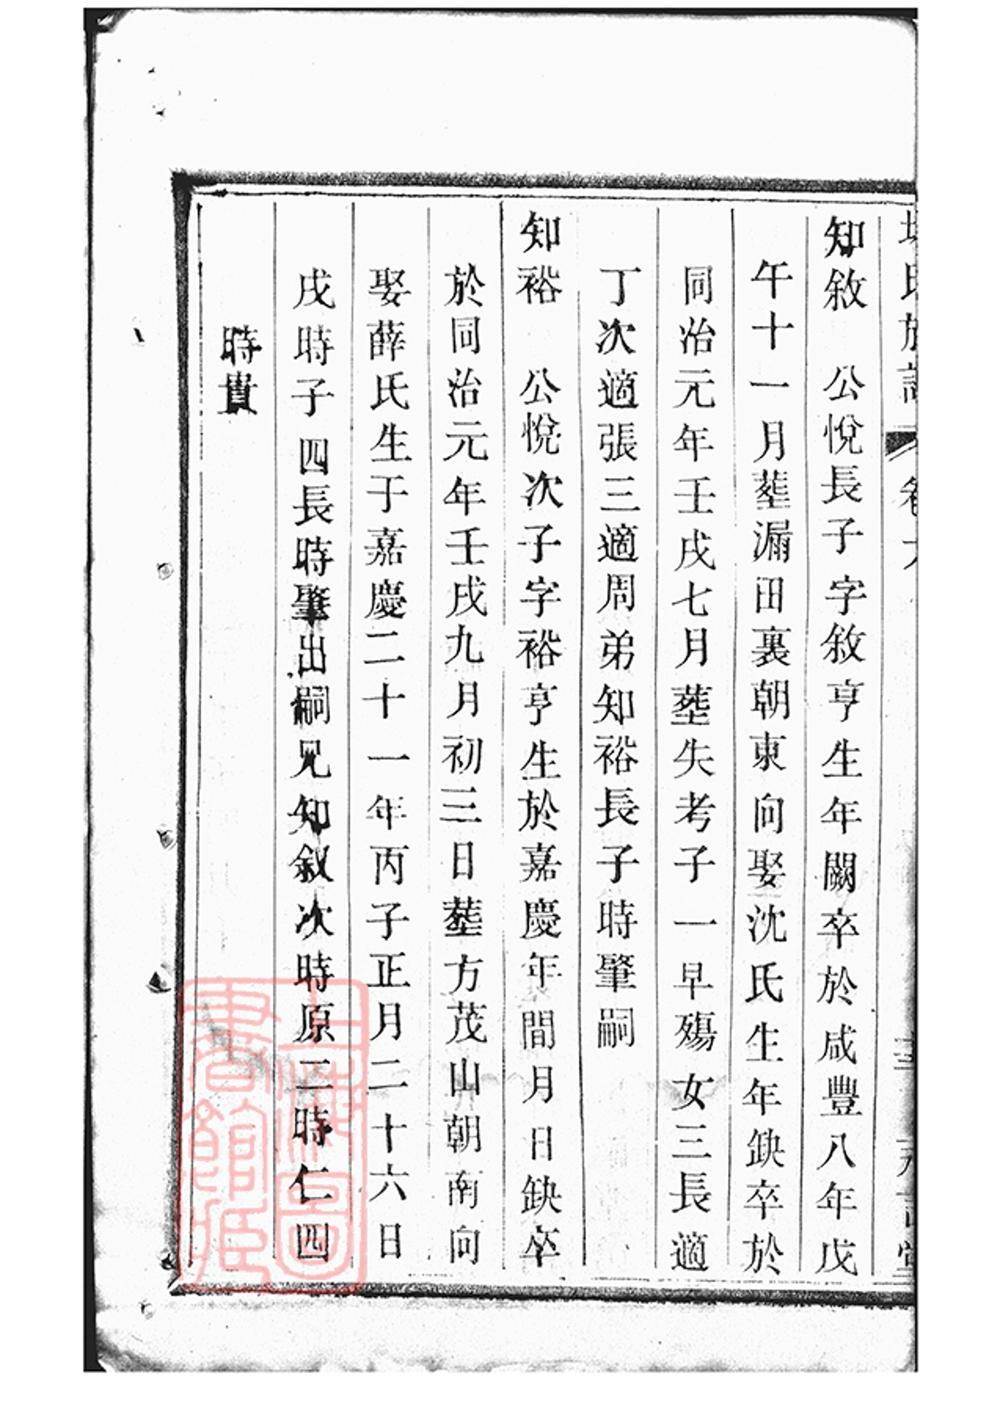 氏族譜 卷六
知敘 公悅長子字敘亨生年闕卒於咸豐八年戊
午十一月塟漏田裏朝東向娶沈氏生年缺卒於
同治元年壬戌七月塟失考子一早殤女三長適
丁次適張三適周弟知裕長子時肇嗣
知裕 公悅次子字裕亨生於嘉慶年間月日缺卒
於同治元年壬戌九月初三日塟方茂山朝南向
娶薛氏生于嘉慶二十一年丙子正月二十六日
戌時子四長時肇出嗣兄知敘次時原三時仁四
時貴
上海圖
書館藏